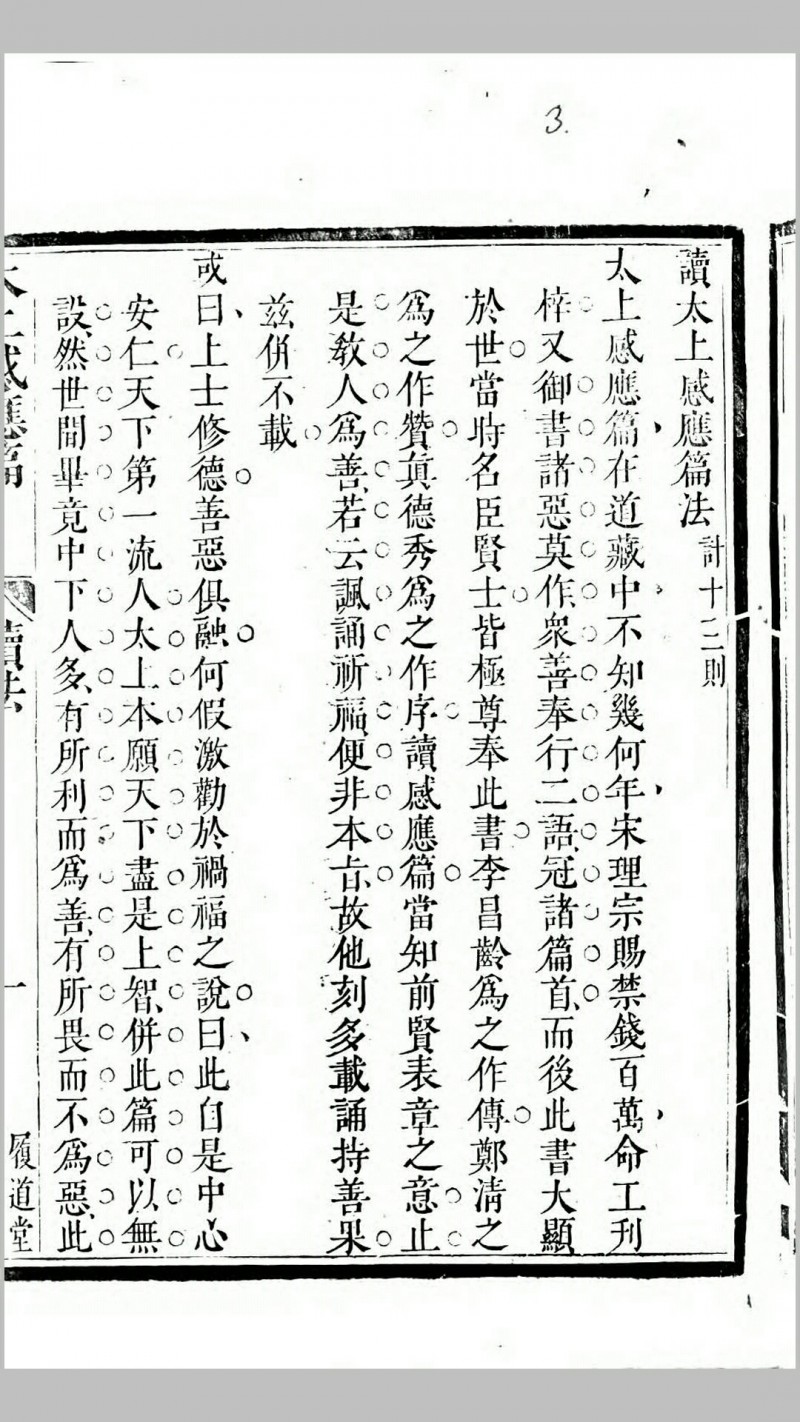 3.
讀太上感應篇法計十三則
太上感應篇在道藏中不知幾何年宋理宗賜禁錢百萬命工刊
梓又御書諸惡莫作衆善奉行二語冠諸篇首而後此書大顯
於世當時名臣賢士皆極尊奉此書李昌齡爲之作傳鄭淸之
爲之作贊眞德秀爲之作序讀感應篇當知前賢表章之意止
是敎人爲善若云諷誦祈福便非本旨故他刻多載誦持善果
茲倂不載
或曰上士修德善惡俱融何假激勸於禍福之說曰此自是中心
安仁天下第一流人太上本願天下盡是上智倂此篇可以無
設然世間畢竟中下人多有所利而爲善有所畏而不爲惡此
太上感應篇 讀法 一 履道堂